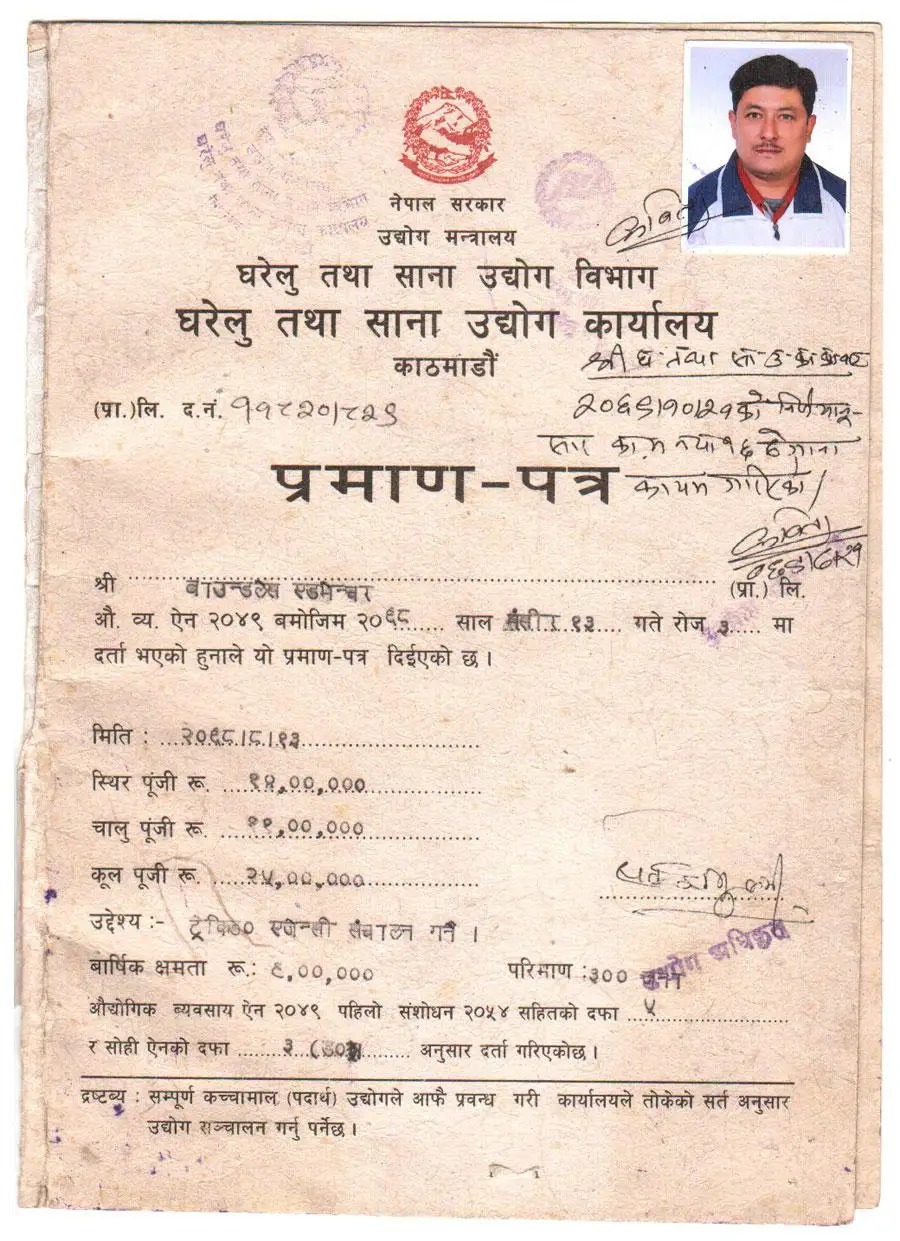 नेपाल सरकार
उद्योग मन्त्रालय
घरेलु तथा साना उद्योग विभाग
घरेलु तथा साना उद्योग कार्यालय
काठमाडौं
(प्रा.)लि. द.नं. ११८२०/८२९
२०६९/१०/२१ को
प्रमाण-पत्र
कायम गरिएको।
श्री बाउन्डलेस एडभेन्चर (प्रा.) लि.
औ. व्य. ऐन २०४९ बमोजिम २०६८ साल मंसीर १३ गते रोज ३ मा
दर्ता भएको हुनाले यो प्रमाण-पत्र दिईएको छ ।
मिति : २०६८।८।१३
स्थिर पूंजी रू. १४,००,०००
चालु पूंजी रू. ११,००,०००
कूल पूजी रू. २५,००,०००
उद्देश्य :- ट्रेकिङ एजेन्सी संचालन गर्ने ।
बार्षिक क्षमता रू.: ६,००,००० परिमाण : ३०० जना
उद्योग अधिकृत
औद्योगिक ब्यवसाय ऐन २०४९ पहिलो संशोधन २०५४ सहितको दफा ५
र सोही ऐनको दफा ३ अनुसार दर्ता गरिएकोछ ।
द्रष्टव्य : सम्पूर्ण कच्चामाल (पदार्थ) उद्योगले आफै प्रवन्ध गरी कार्यालयले तोकेको सर्त अनुसार
उद्योग सञ्चालन गर्नु पर्नेछ ।